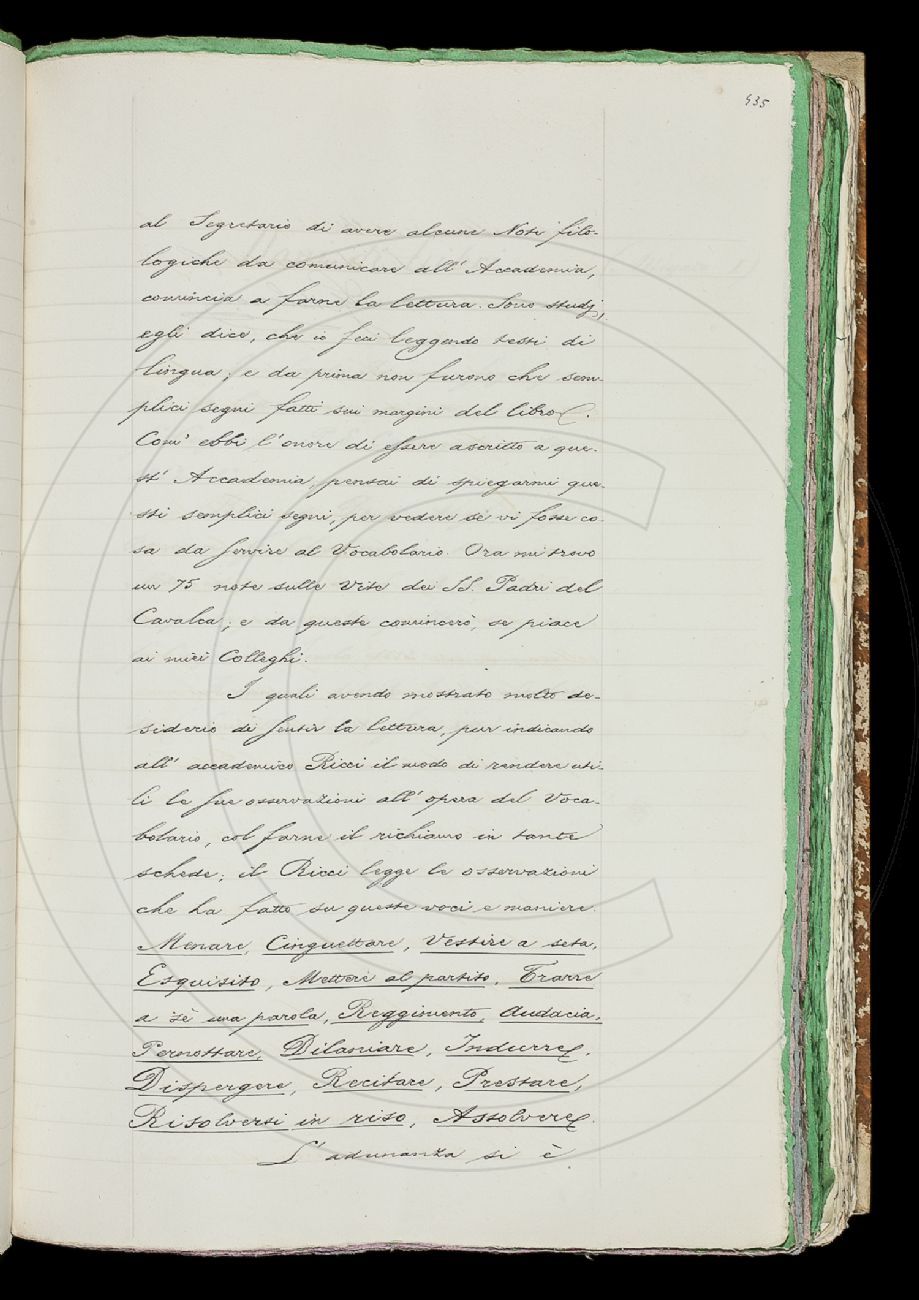 535
al Segretario di avere alcune Note filo-
logiche da comunicare all' Accademia,
comincia a farne la lettura. Sono studj,
egli dice, che io feci leggendo testi di
lingua; e da prima non furono che sem-
plici segni fatti sui margini del libro.
Com' ebbi l'onore di essere ascritto a que-
st' Accademia, pensai di spiegarmi que-
sti semplici segni, per vedere se vi fosse co-
sa da servire al Vocabolario. Ora mi trovo
un 75 note sulle Vite dei SS. Padri del
Cavalca; e da queste comincerò, se piace
ai miei Colleghi.
I quali avendo mostrato molto de-
siderio di sentir la lettura, pur indicando
all' accademico Ricci il modo di rendere uti-
li le sue osservazioni all' opera del Voca-
bolario, col farne il richiamo in tante
schede; il Ricci legge le osservazioni
che ha fatto su queste voci e maniere.
Menare, Cinguettare, Vestire a seta,
Esquisito, Mettere al partito, Trarre
a sè una parola, Reggimento, Audacia,
Pernottare, Dilaniare, Indurre,
Dispergere, Recitare, Prestare,
Risolversi in riso, Assolvere.
L' adunanza si è